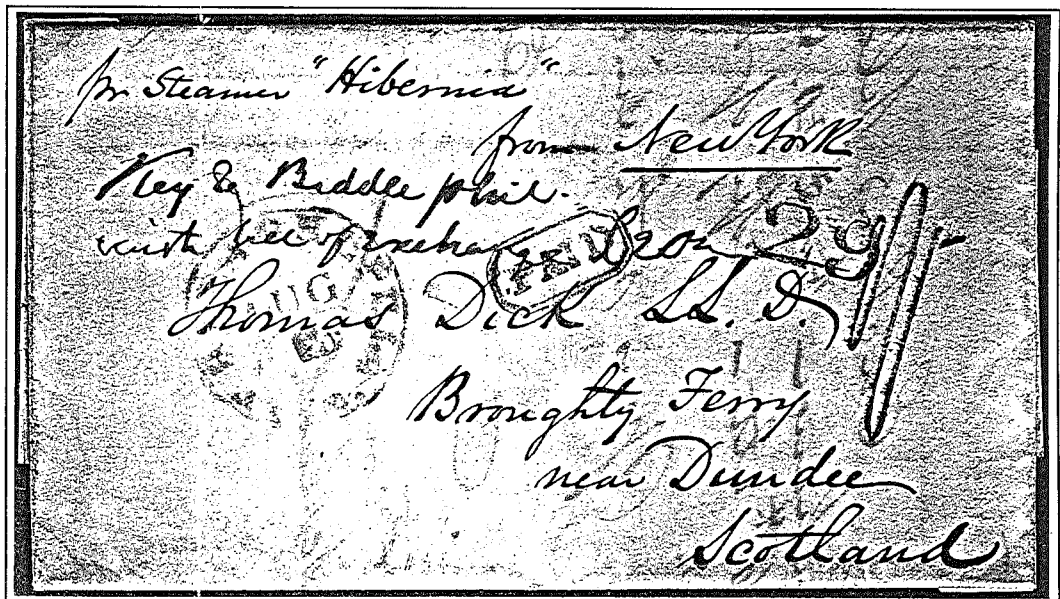 pr Steamer "Hibernia"
from New York
Key & Biddle phil.
with bill of exchange
PAID
29
AUG
Thomas Dick LL. D.
Broughty Ferry
near Dundee
Scotland